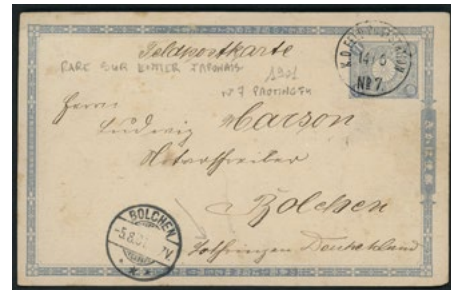 Feldpostkarte
RARE SUR ENTIER JAPONAIS
1901
N° 7 PAOTINGFU
K.D. FELDPOSTSTATION
14/6
No 7.
Herrn
Ludwig Marson
Notarschreiber
Bolchen
Lothringen Deutschland
BOLCHEN
-5.8.01